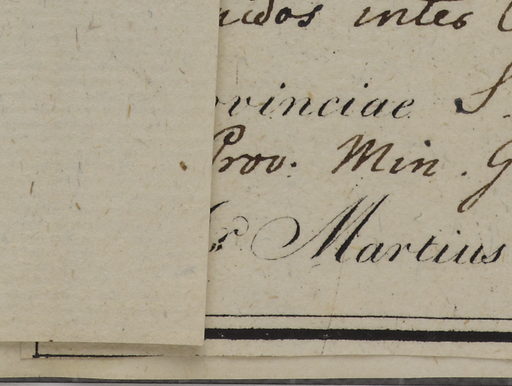 inter
vinciae S
Prov. Min. G
Martius